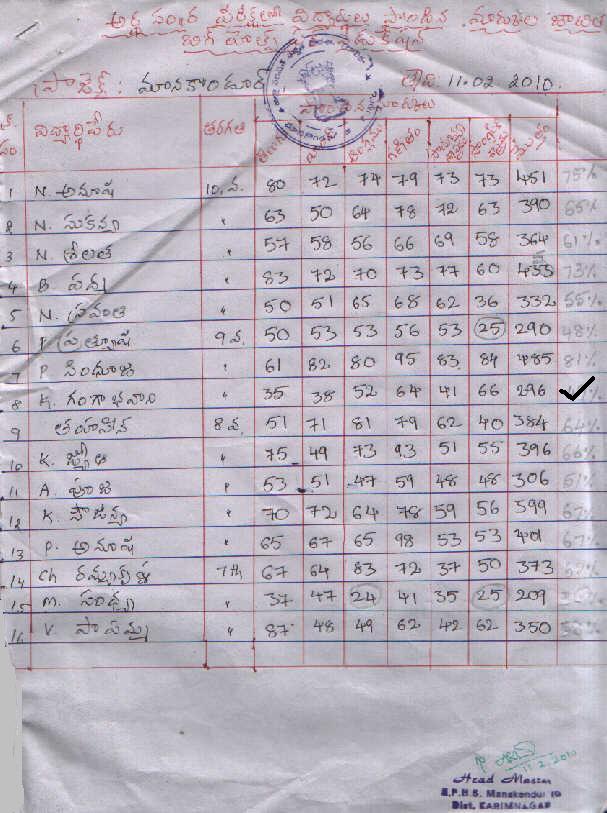 అర్థ సంవత్సర పరీక్షలలో విద్యార్థులు సాధించిన మార్కుల
మానకొండూర్ 11.02 2010.
సాధించిన మార్కులు
విద్యార్థిపేరు తరగతి తెలుగు గణితం
1 N. అనూష 10 వ. 80 72 74 79 73 73 451 75%
2 N. సుకన్యా " 63 50 64 78 72 63 390 65%
3 N. శ్రీలత " 57 58 56 66 69 58 364 61%
4 B. " 83 72 70 73 77 60 433 73%
5 N. స్రవంతి 50 51 65 68 62 36 332 55%
6 P. ప్రత్యూష 9 వ. 50 53 53 56 53 25 290 48%
7 P. సింధూజ " 61 82 80 95 83 84 485 81%
8 K. గంగాభవాని " 35 38 52 64 41 66 296
9 తహసీన 8 వ. 51 71 81 79 62 40 384 64%
10 K. " 75 49 73 93 51 55 396 66%
11 A. పూజ " 53 51 47 59 48 48 306 51%
12 K. సౌజన్య " 70 72 64 78 59 56 399 67%
13 P. అనూష " 65 67 65 98 53 53 401 67%
14 Ch 7th 67 64 83 72 37 50 373 62%
15 M. సంధ్య " 37 47 24 41 35 25 209
16 V. " 87 48 49 62 42 62 350
11.2.2010
Head Master
Z.P.H.S. Manakondur
Dist. KARIMNAGAR